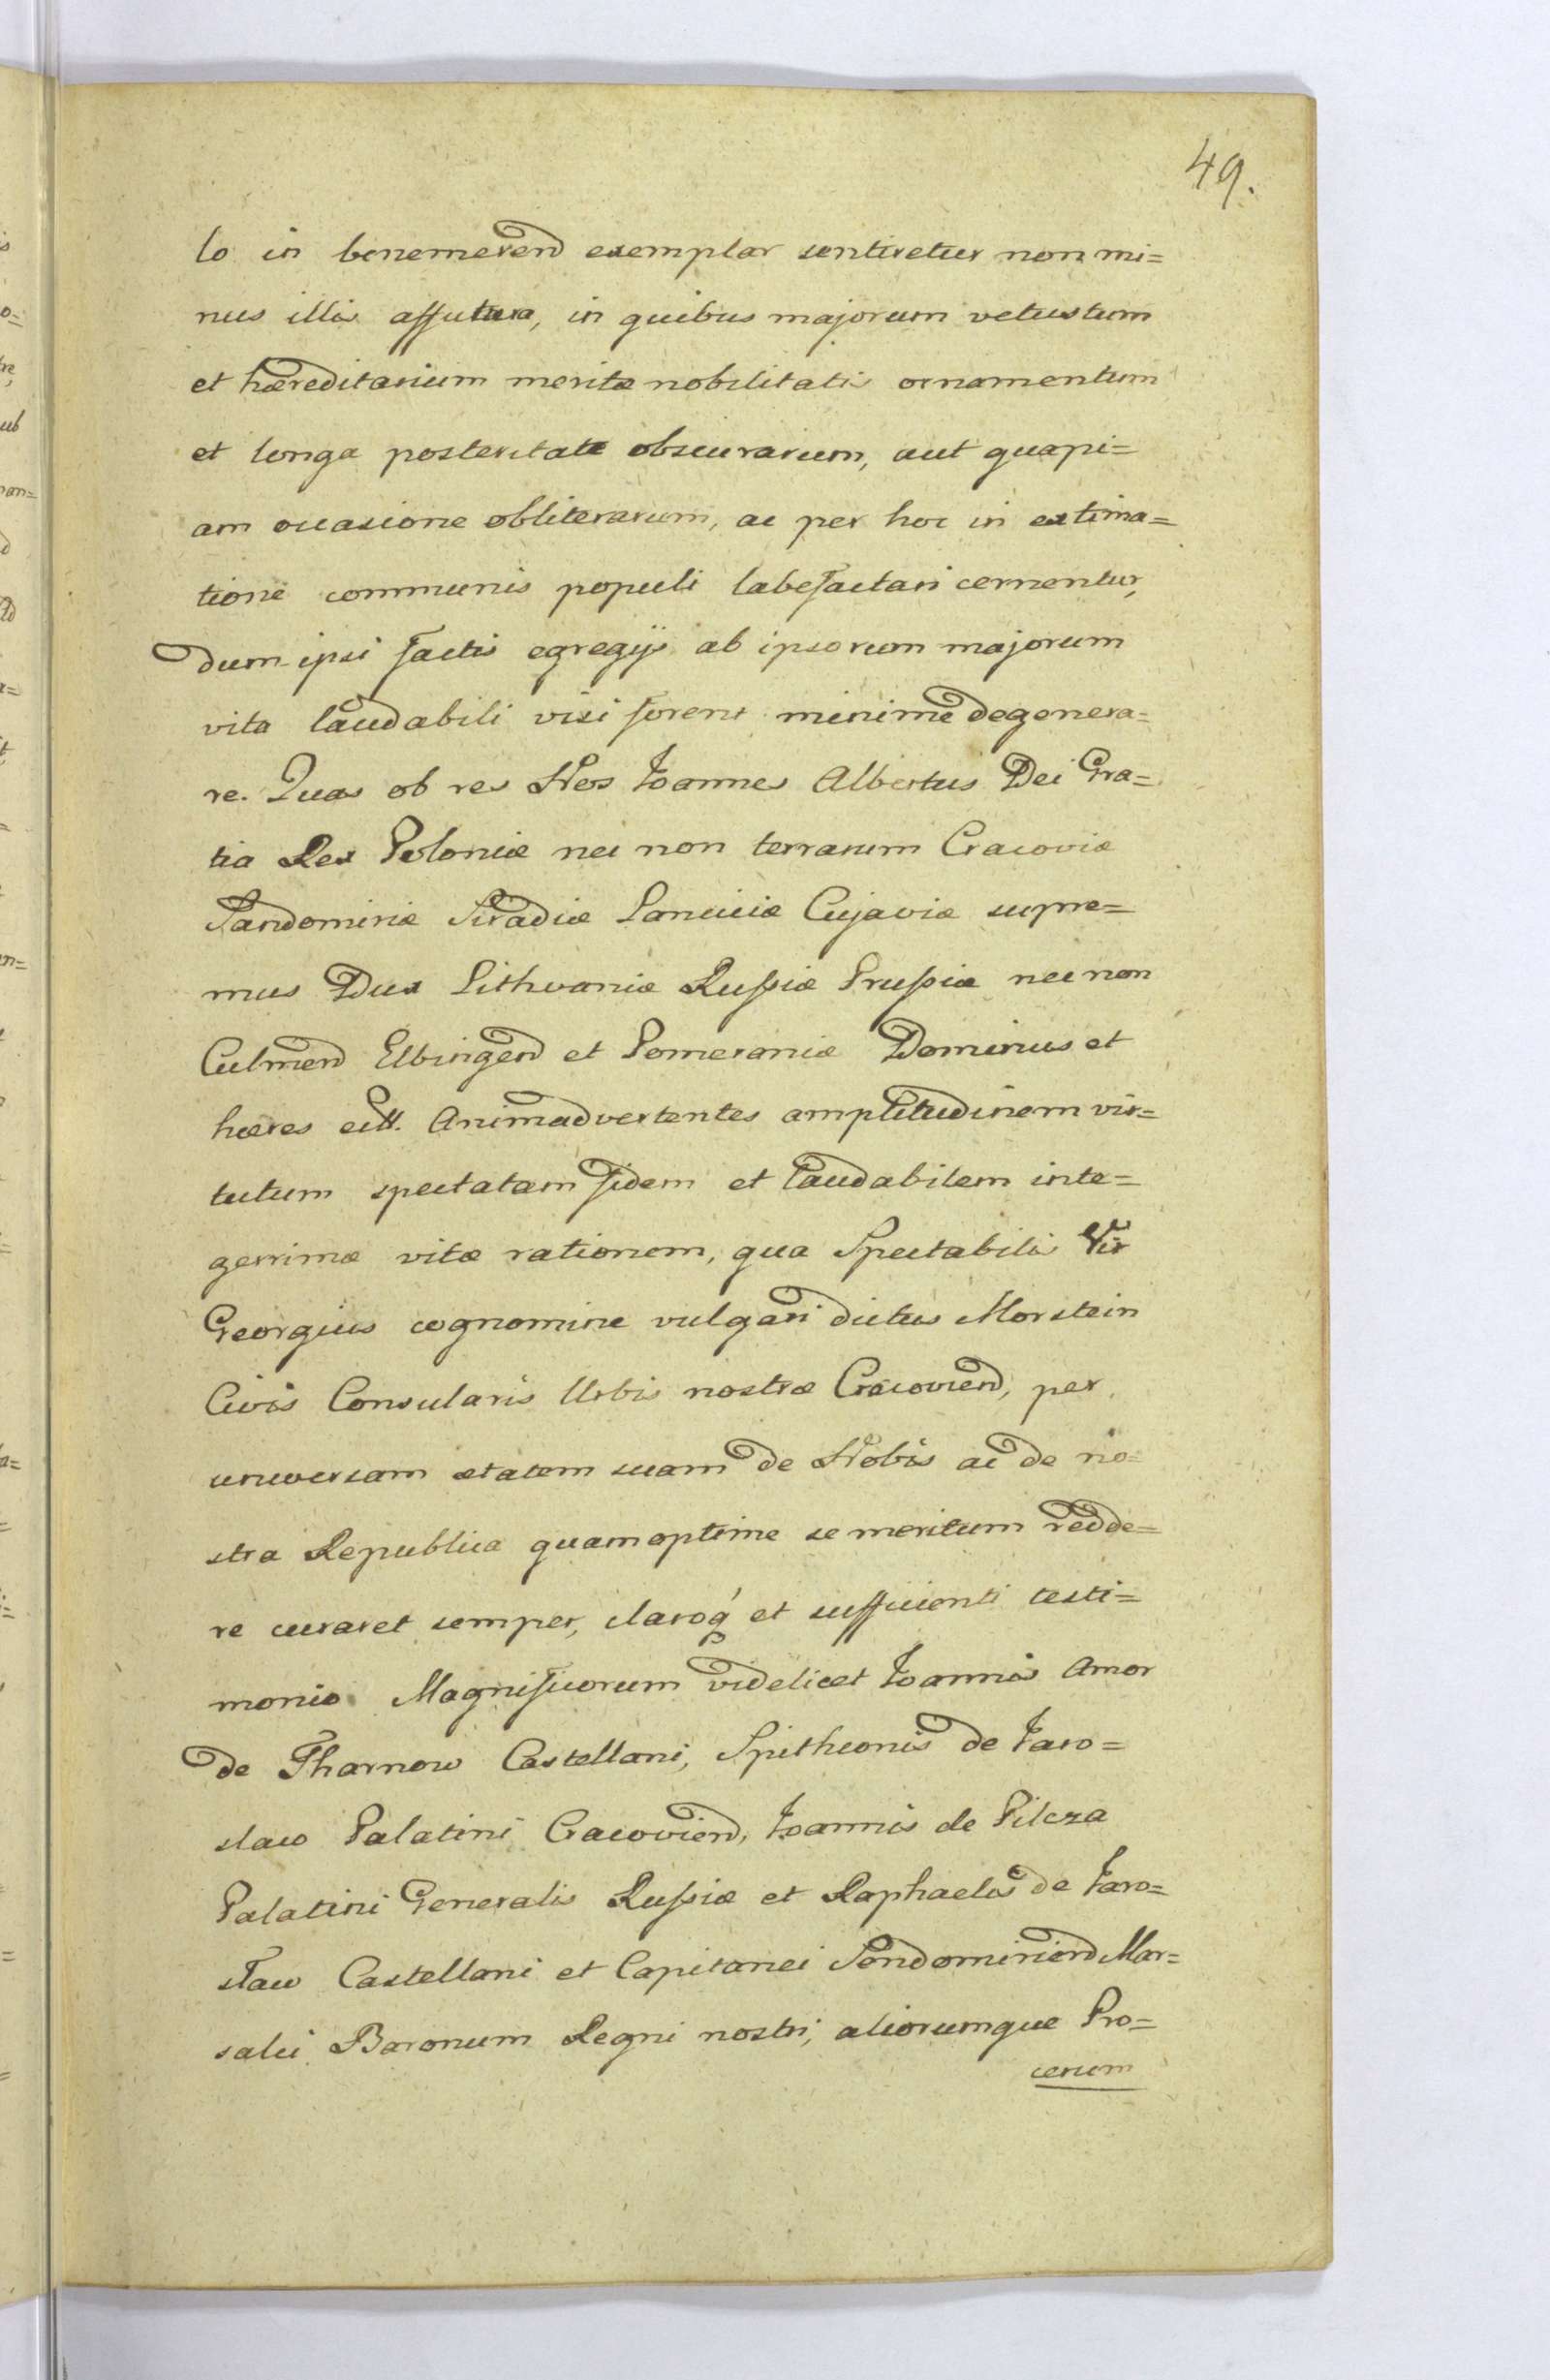 49.
lo in benemerend exemplar sentiretur non mi=
nus illis affutura, in quibus majorum vetustum
et hæreditarium meritæ nobilitatis ornamentum
et longa posteritate obscurarum, aut quapi=
am occasione obliterarum, ac per hoc in extima=
tione communis populi labefactari cernentur,
dum ipsi factis egregijs ab ipsorum majorum
vita laudabili visi forent minime degenera=
re. Quas ob res Nos Joannes Albertus Dei Gra=
tia Rex Poloniæ nec non terrarum Cracoviæ
Sandomiriæ Siradiæ Lanciciæ Cujaviæ supre=
mus Dux Lithvaniæ Rußiæ Prußiæ nec non
Culmend Elbingend et Pomeraniæ Dominus et
hæres ett. Animadvertentes amplitudinem vir=
tutum spectatam fidem et laudabilem inte=
gerrimæ vitæ rationem, qua Spectabilis Vir
Georgius cognomine vulgari dictus Morstein
Civis Consularis Urbis nostræ Cracoviend, per
universam ætatem suam de Nobis ac de no=
stra Republica quam optime se meritum redde=
re curaret semper, claroq́ et sufficienti testi=
monio Magnificorum videlicet Joannis Amor
de Tharnow Castellani, Spitkonis de Jaro=
slaw Palatini Cracoviend, Joannis de Pilcza
Palatini Generalis Rußiæ et Raphaelis de Jaro=
slaw Castellani et Capitanei Sandomiriend Mar=
salci Baronum Regni nostri, aliorumque Pro=
cerum